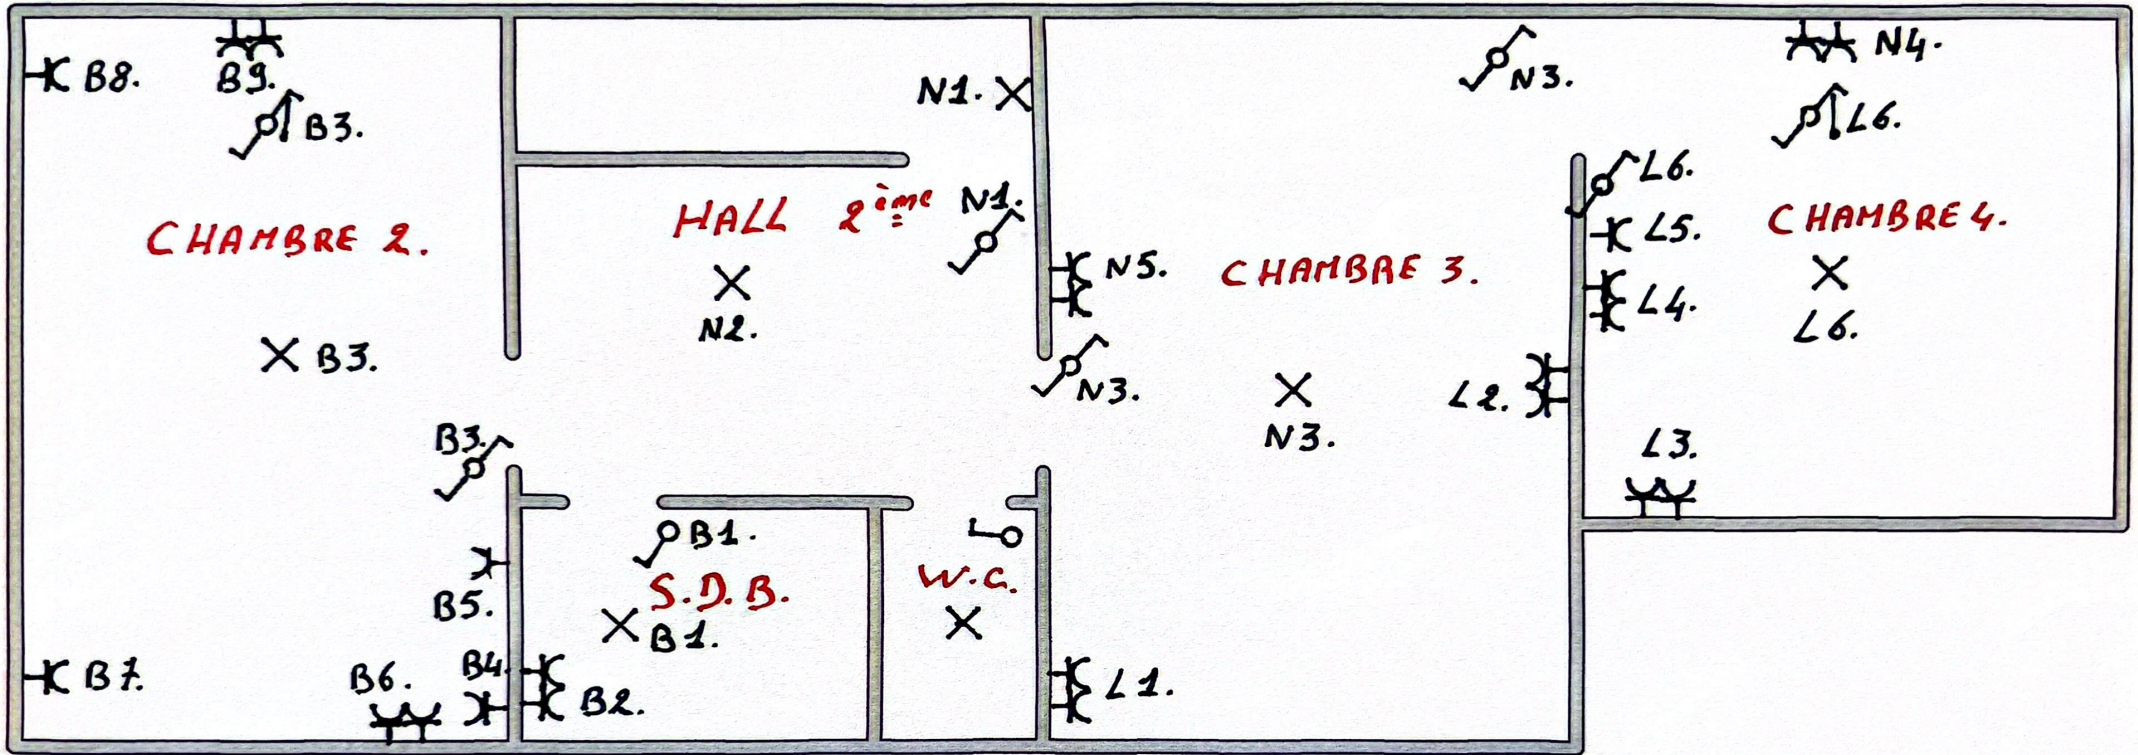 B8.
B9.
B3.
CHAMBRE 2.
B3.
B3.
B5.
B7.
B6.
B4
B2.
N1.
HALL 2ème
N1.
N2.
B1.
S.D.B.
B1.
W.C.
N3.
N5.
CHAMBRE 3.
N3.
N3.
L2.
L1.
N4.
L6.
L6.
L5.
CHAMBRE 4.
L4.
L6.
L3.